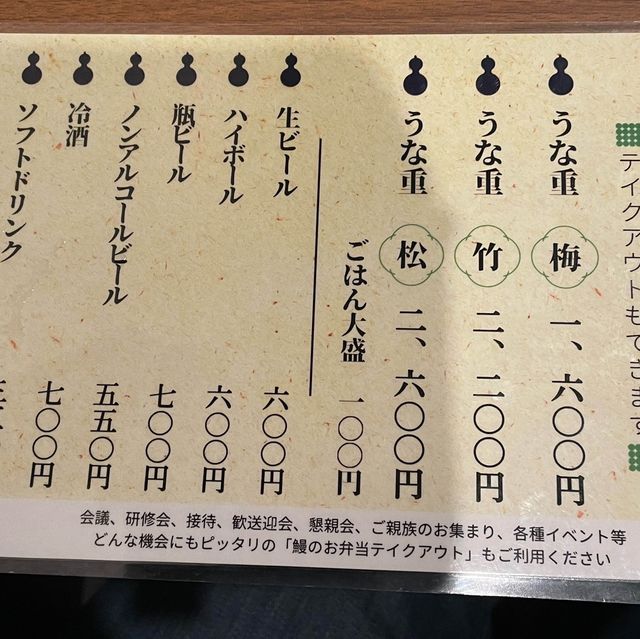 テイクアウトもできます
うな重 梅 一、六〇〇円
うな重 竹 二、二〇〇円
うな重 松 二、六〇〇円
ごはん大盛 一〇〇円
生ビール 六〇〇円
ハイボール 六〇〇円
瓶ビール 七〇〇円
ノンアルコールビール 五五〇円
冷酒 七〇〇円
ソフトドリンク
会議、研修会、接待、歓送迎会、懇親会、ご親族のお集まり、各種イベント等
どんな機会にもピッタリの「鰻のお弁当テイクアウト」もご利用ください